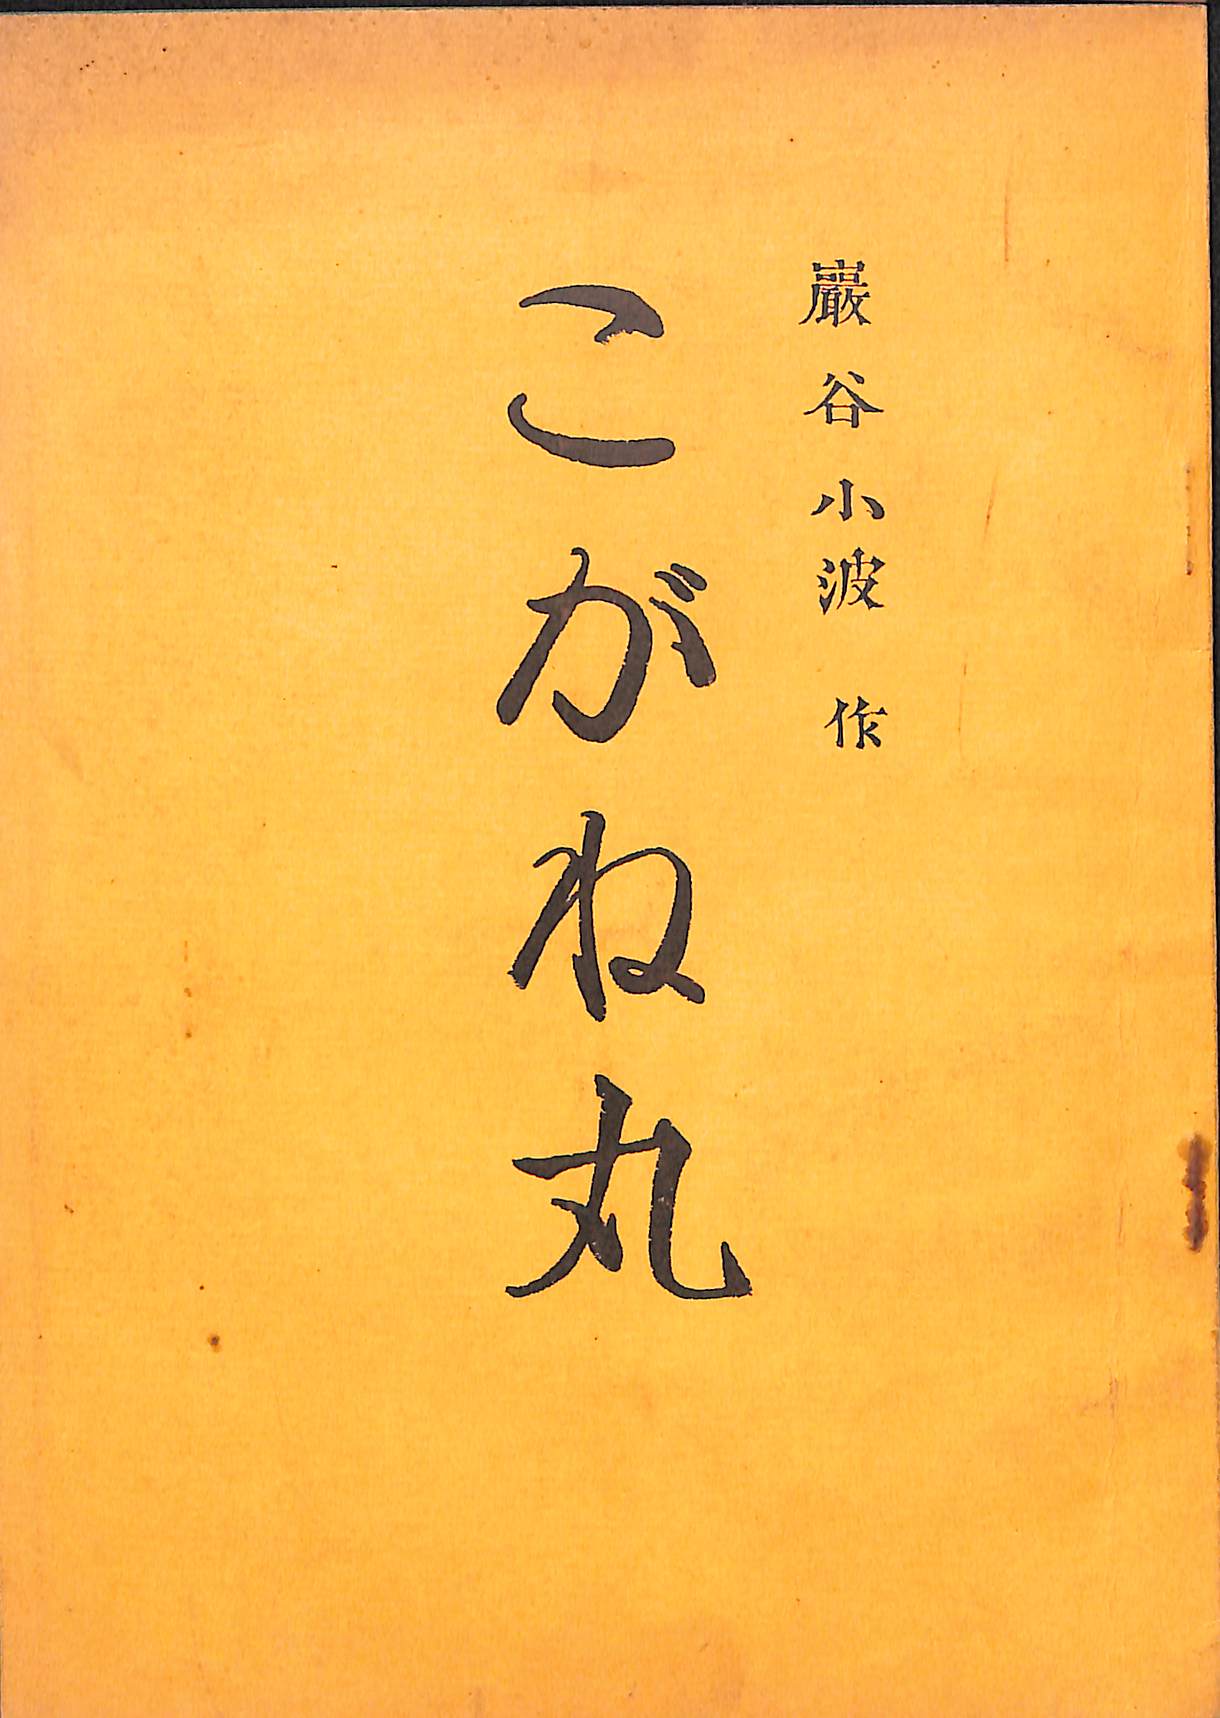 巖谷小波 作
こがね丸